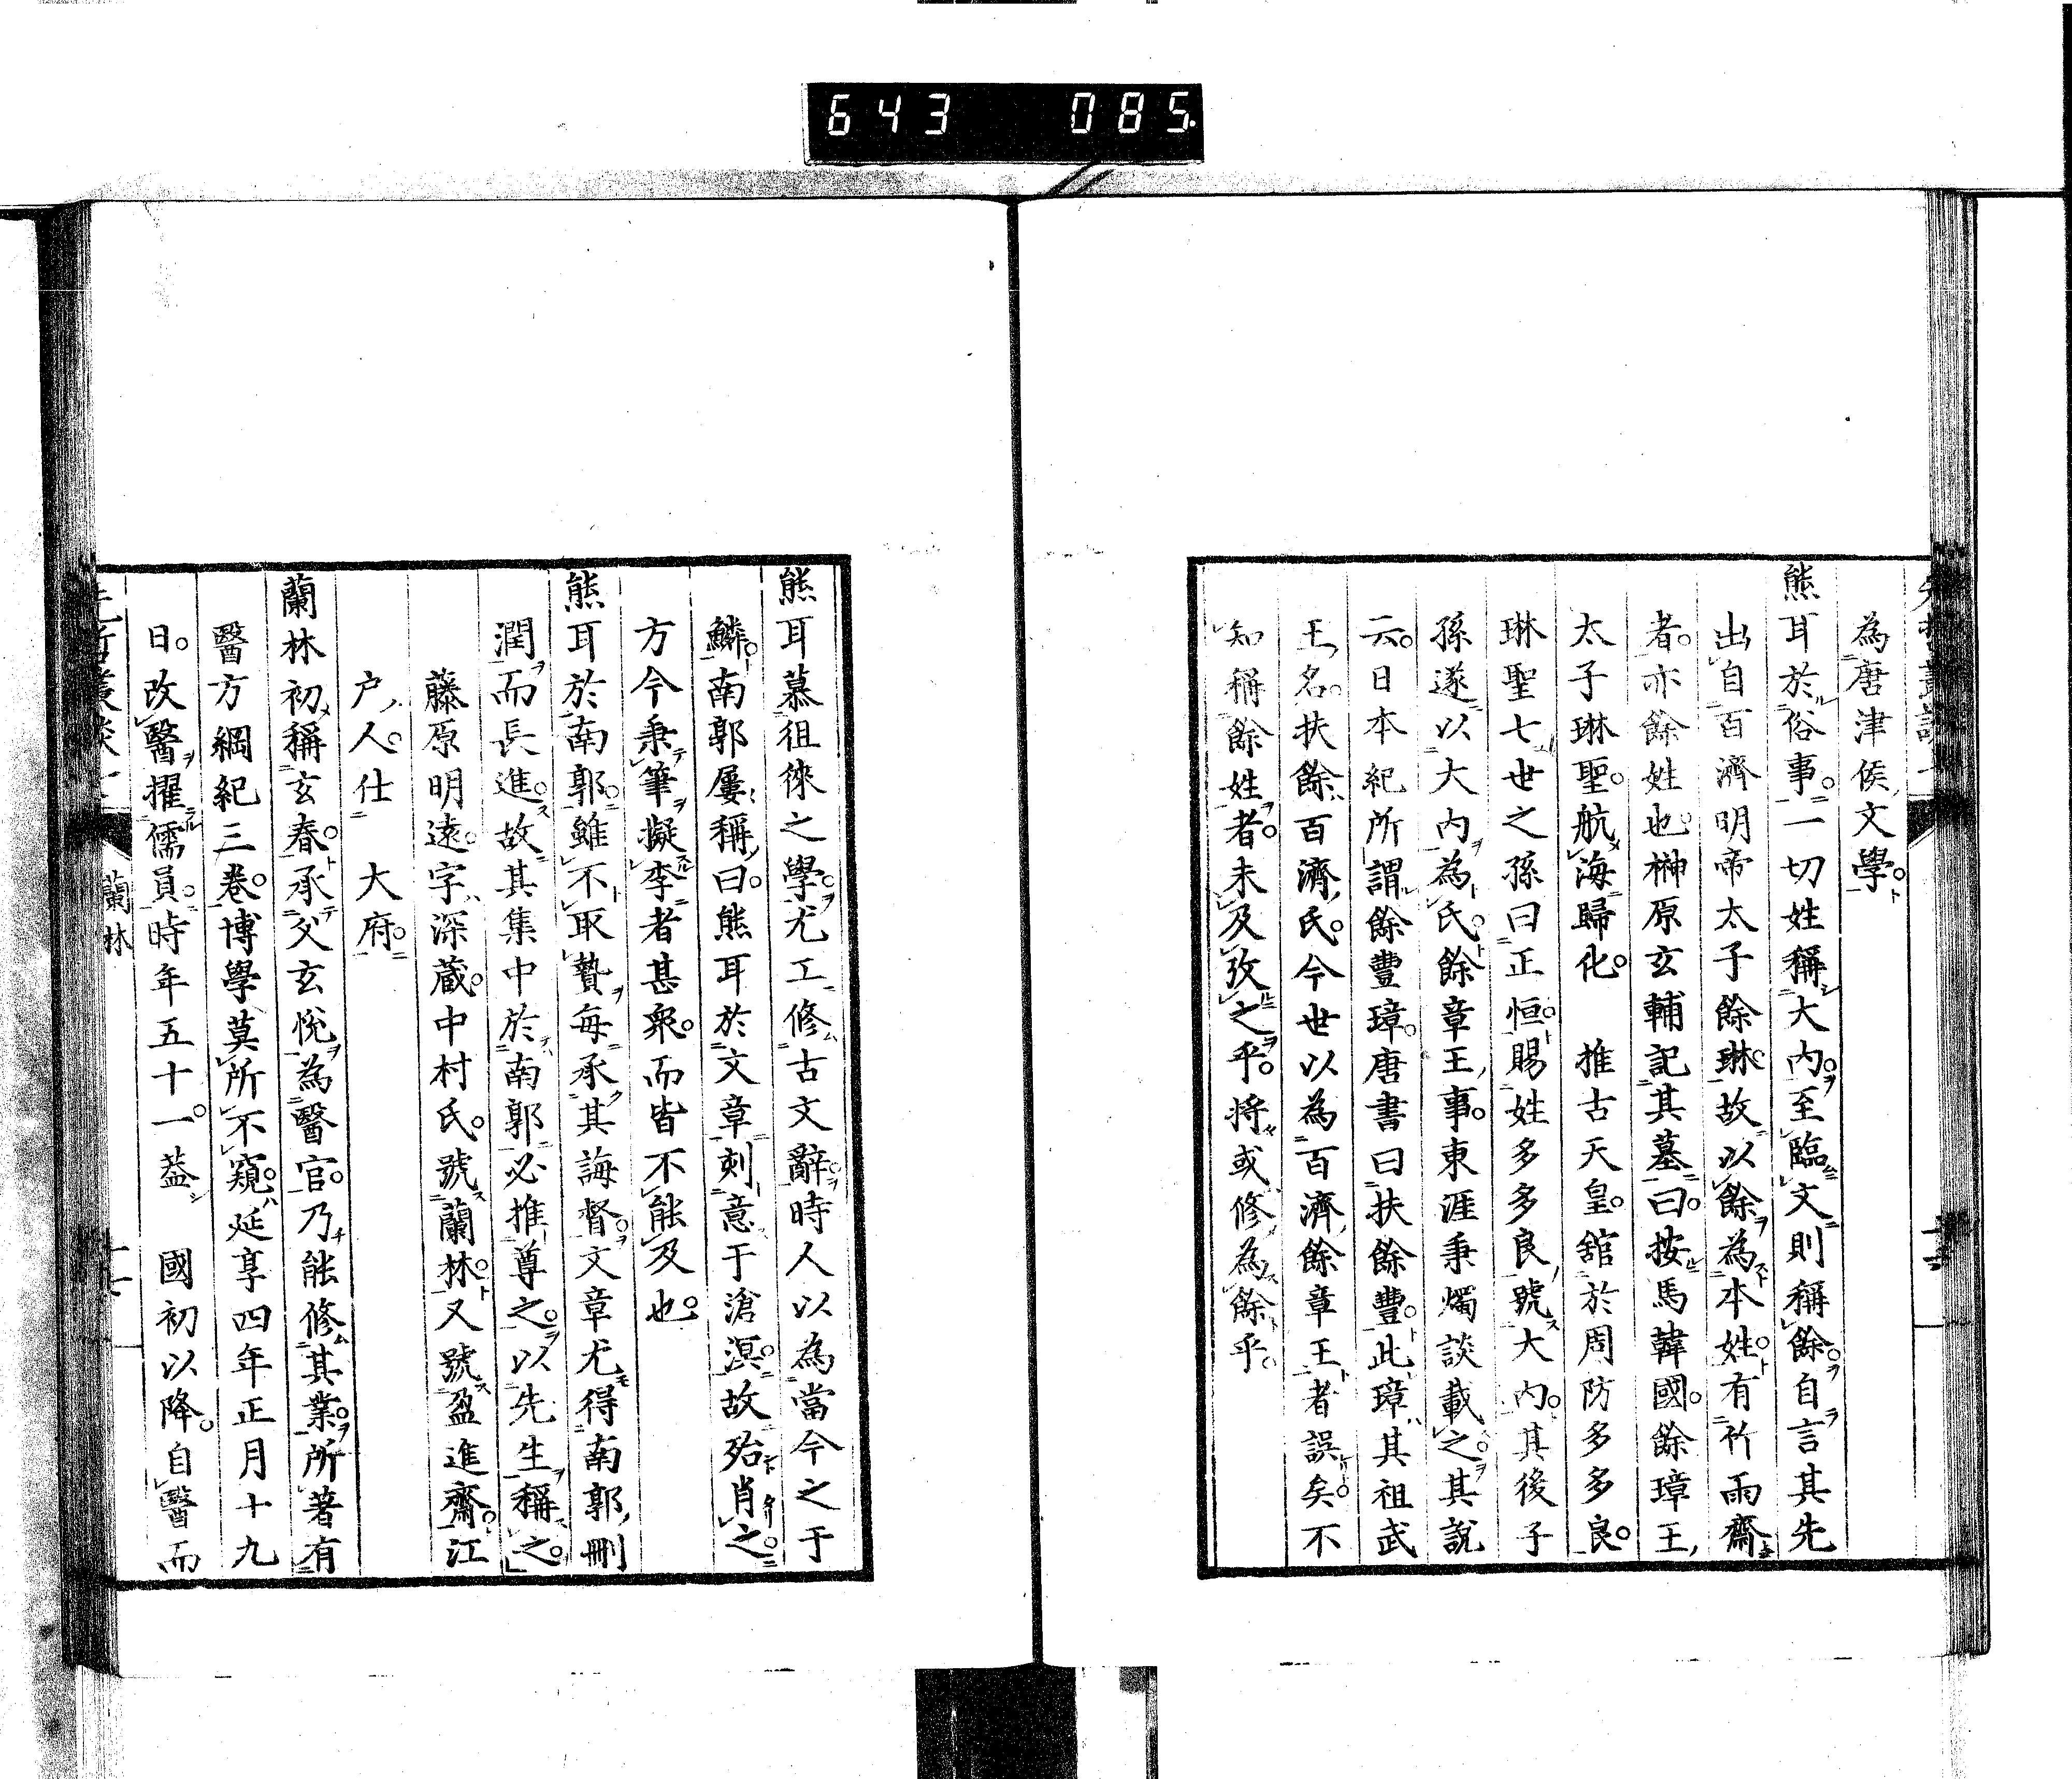 643 085.
為唐津侯文學
熊耳於俗事一切姓稱大内至臨文則稱餘自言其先
出自百濟明帝太子餘琳故以餘為本姓有竹雨齋
者亦餘姓也榊原玄輔記其墓曰按馬韓國餘璋王
太子琳聖航海歸化 推古天皇舘於周防多多良
琳聖七世之孫曰正恒賜姓多多良號大内其後子
孫遂以大内為氏餘章王事東涯秉燭談載之其說
云日本紀所謂餘豐璋唐書曰扶餘豐此璋其祖武
王名扶餘百濟氏今世以為百濟餘章王者誤矣不
知稱餘姓者未及攷之乎將或修為餘乎
熊耳慕徂徠之學尤工修古文辭時人以為當今之于
鱗南郭屢稱曰熊耳於文章刻意于滄溟故殆肖之
方今秉筆擬李者甚衆而皆不能及也
熊耳於南郭雖不取贄每承其誨督文章尤得南郭刪
潤而長進故其集中於南郭必推尊之以先生稱之
藤原明遠字深蔵中村氏號蘭林又號盈進齋江
户人仕 大府
蘭林初稱玄春承父玄悅為醫官乃能修其業所著有
醫方綱紀三卷博學莫所不窺延享四年正月十九
日改醫擢儒員時年五十一葢 國初以降自醫而
蘭林